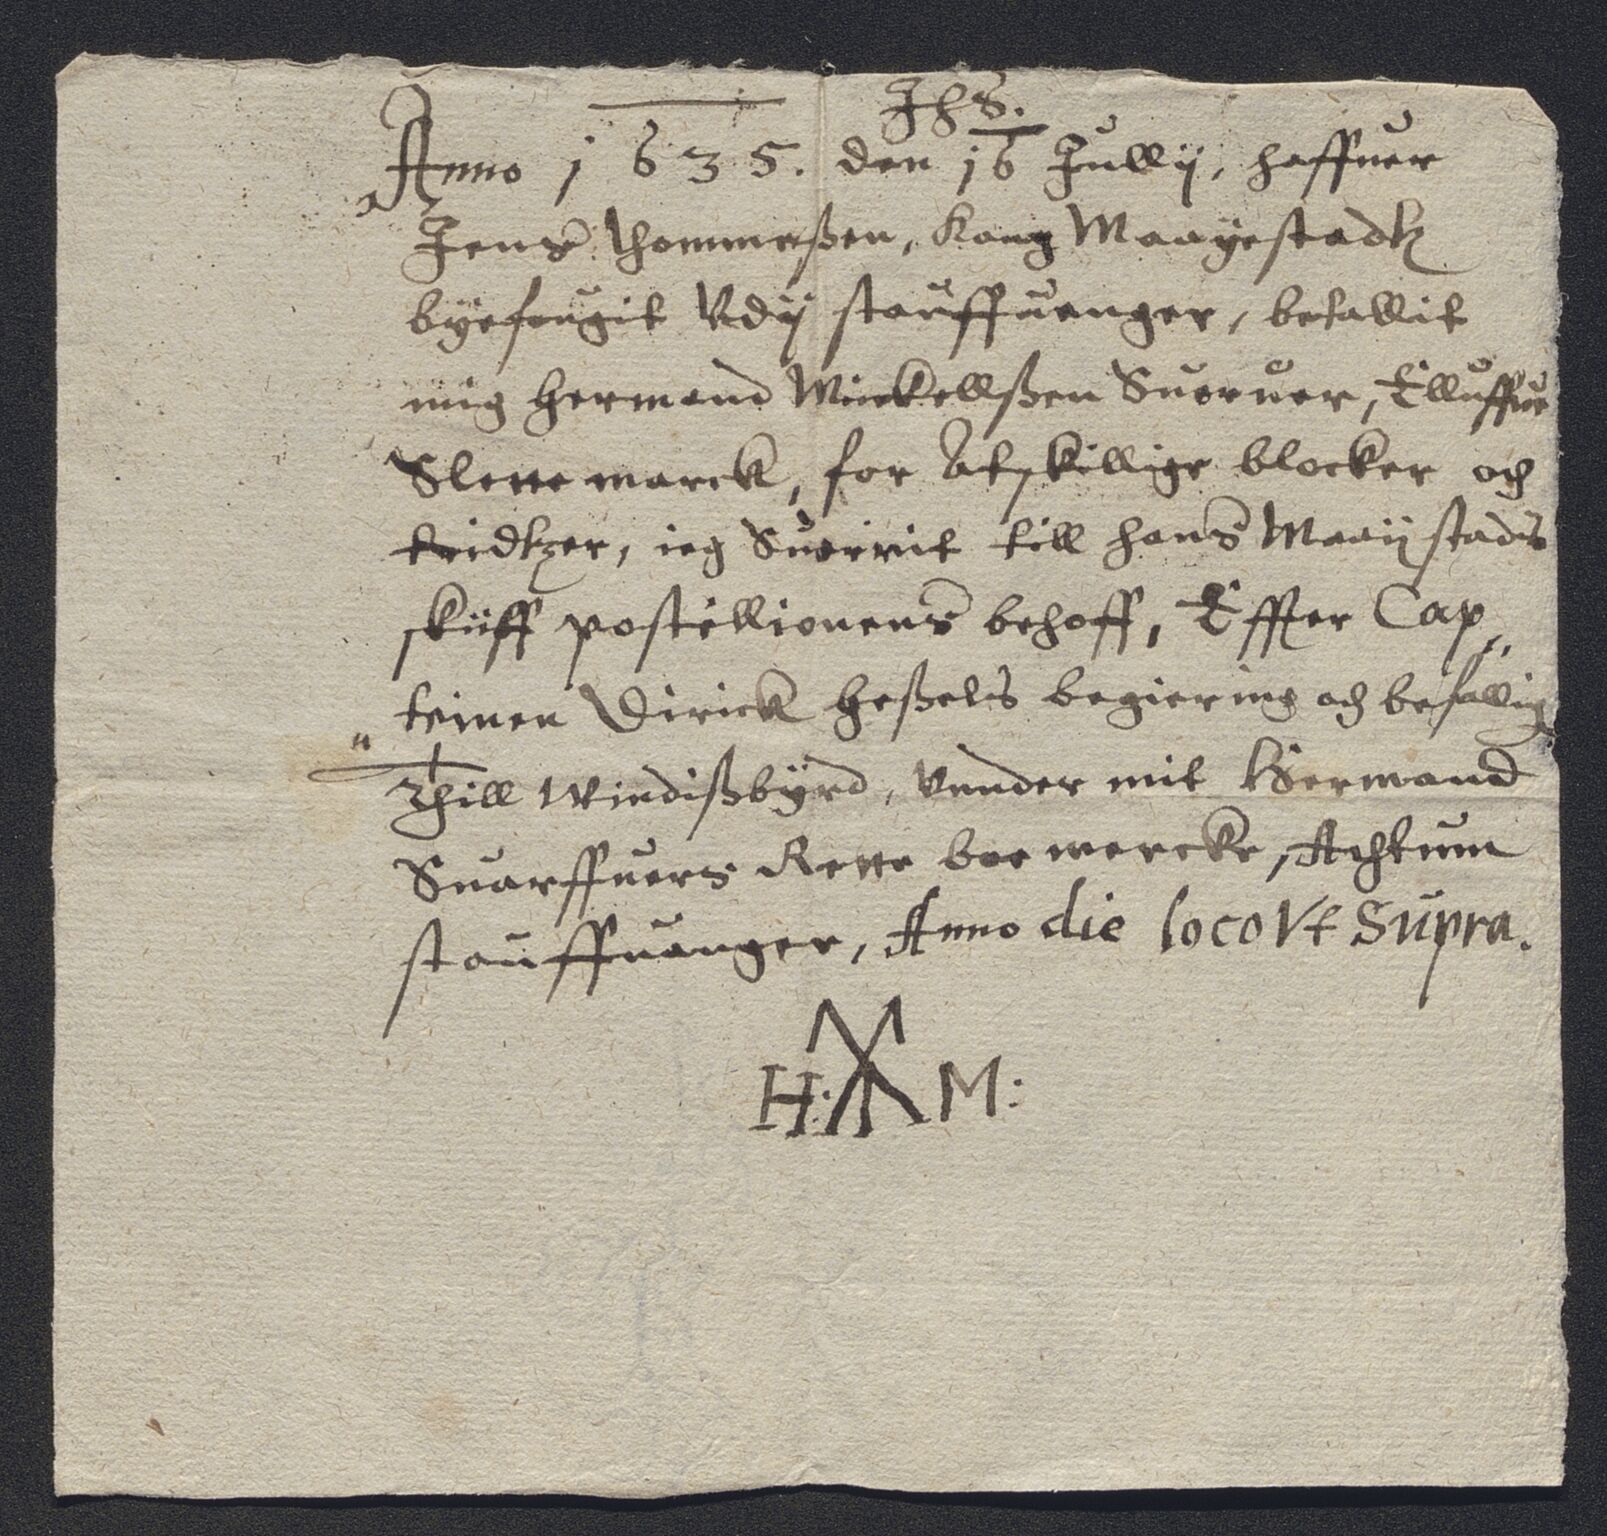 Jhs.
Anno 1635. den 16 Jullij, haffuer
Jens thommeßen, Kong Maayestadtz
byefougit Vdij stauffuanger, betallit
mig Hermand Minckellßen Suaruer, Elluffue
Slette marck, for Atskillige blocker och
tridtzer, ieg Suarrit till hans Maaijstads
skiff postellionens behoff, Effter Cap„
„teinen Dirick heßels begiering och befallig
Thill Windißbyrd, Vnnder mit Hermand
Suarffuers Rette boe mercke, Achtum
stauffuanger, Anno die loco Vt Supra.
H: M: